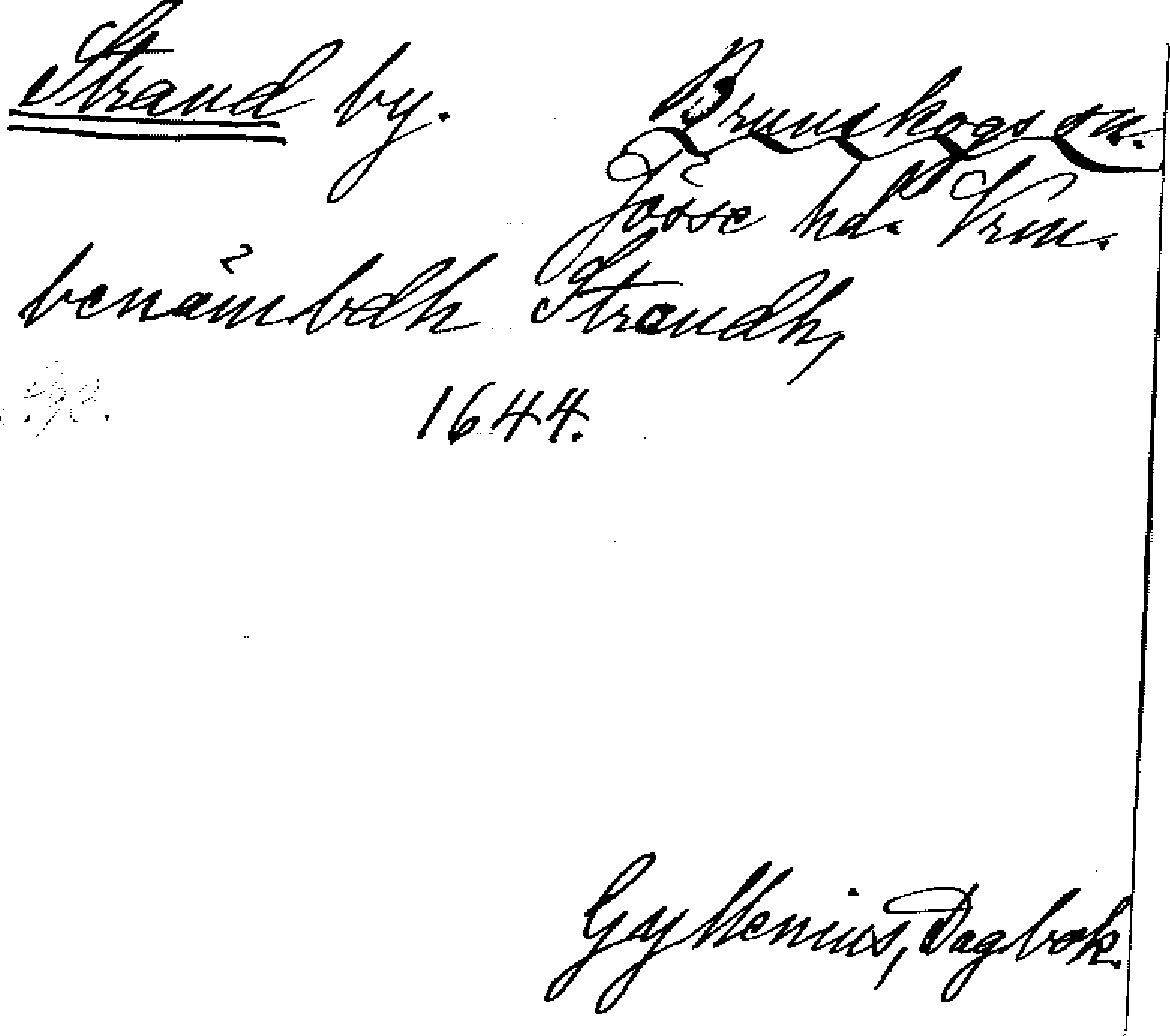 Strand by. Brunskogs sn.
Jösse hd. Vrm.
benåmbdh Strandh,
1644.
Gyllenius, Dagbok.